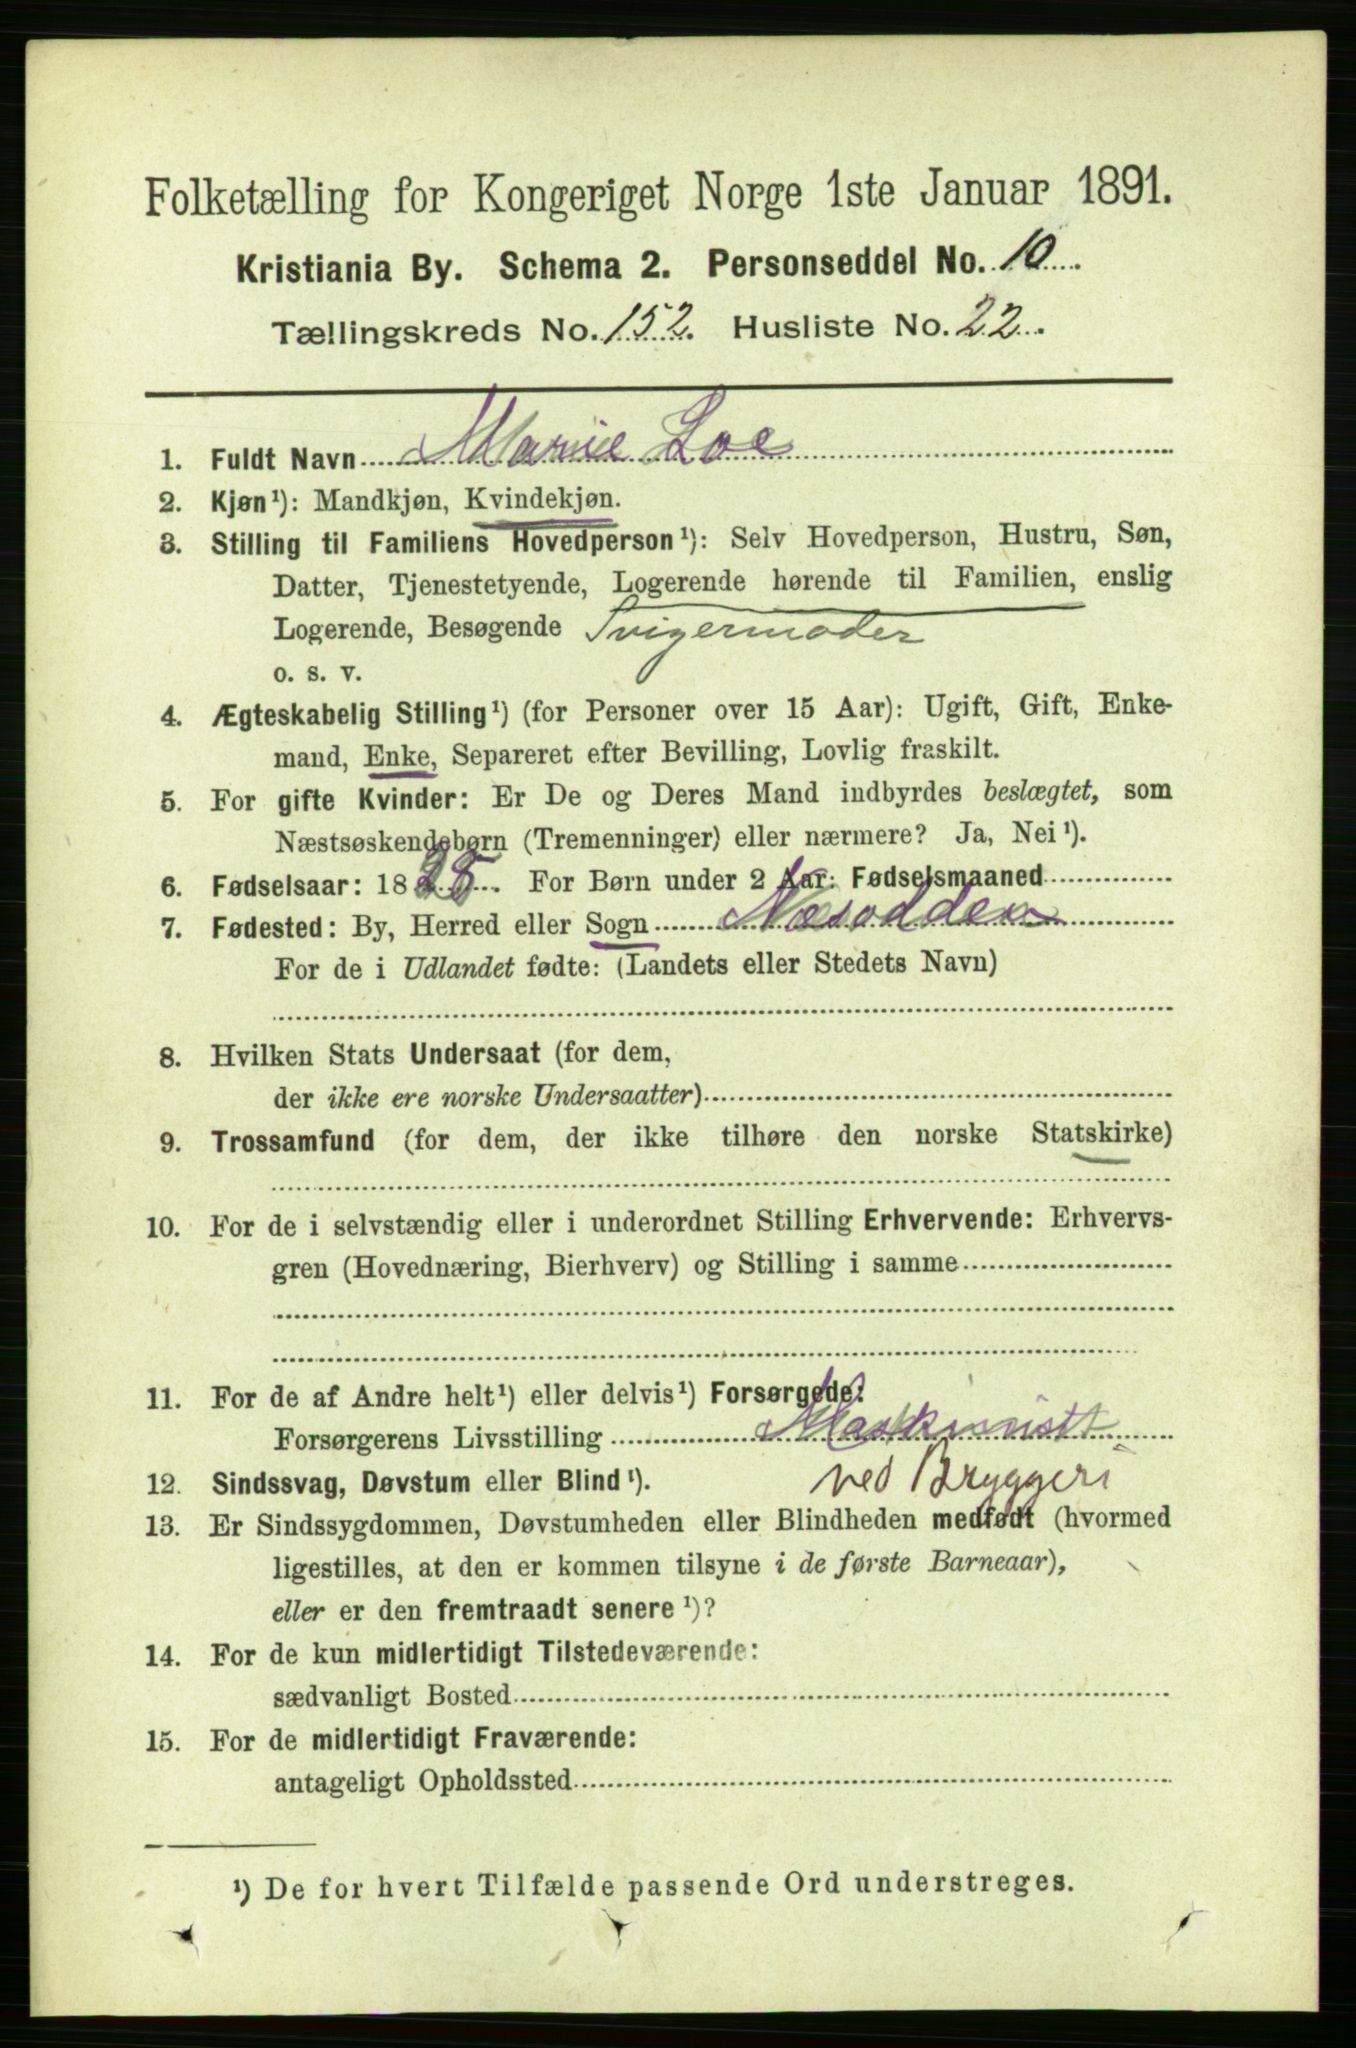 Folketælling for Kongeriget Norge 1ste Januar 1891.
Kristiania By. Schema 2. Personseddel No. 10
Tællingskreds No. 152. Husliste No. 22.
1. Fuldt Navn Marie Loe
2. Kjøn¹): Mandkjøn, Kvindekjøn.
3. Stilling til Familiens Hovedperson¹): Selv Hovedperson, Hustru, Søn,
Datter, Tjenestetyende, Logerende hørende til Familien, enslig
Logerende, Besøgende Svigermoder
o. s. v.
4. Ægteskabelig Stilling¹) (for Personer over 15 Aar): Ugift, Gift, Enke-
mand, Enke, Separeret efter Bevilling, Lovlig fraskilt.
5. For gifte Kvinder: Er De og Deres Mand indbyrdes beslægtet, som
Næstsøskendebørn (Tremenninger) eller nærmere? Ja, Nei¹).
6. Fødselsaar: 18 . For Børn under 2 Aar: Fødselsmaaned
7. Fødested: By, Herred eller Sogn Næsodden
For de i Udlandet fødte: (Landets eller Stedets Navn)
8. Hvilken Stats Undersaat (for dem,
der ikke ere norske Undersaatter)
9. Trossamfund (for dem, der ikke tilhøre den norske Statskirke)
10. For de i selvstændig eller i underordnet Stilling Erhvervende: Erhvervs-
gren (Hovednæring, Bierhverv) og Stilling i samme
11. For de af Andre helt¹) eller delvis¹) Forsørgede:
Forsørgerens Livsstilling Maskinist
ved Bryggeri
12. Sindssvag, Døvstum eller Blind¹).
13. Er Sindssygdommen, Døvstumheden eller Blindheden medfødt (hvormed
ligestilles, at den er kommen tilsyne i de første Barneaar),
eller er den fremtraadt senere¹)?
14. For de kun midlertidigt Tilstedeværende:
sædvanligt Bosted
15. For de midlertidigt Fraværende:
antageligt Opholdssted
¹) De for hvert Tilfælde passende Ord understreges.